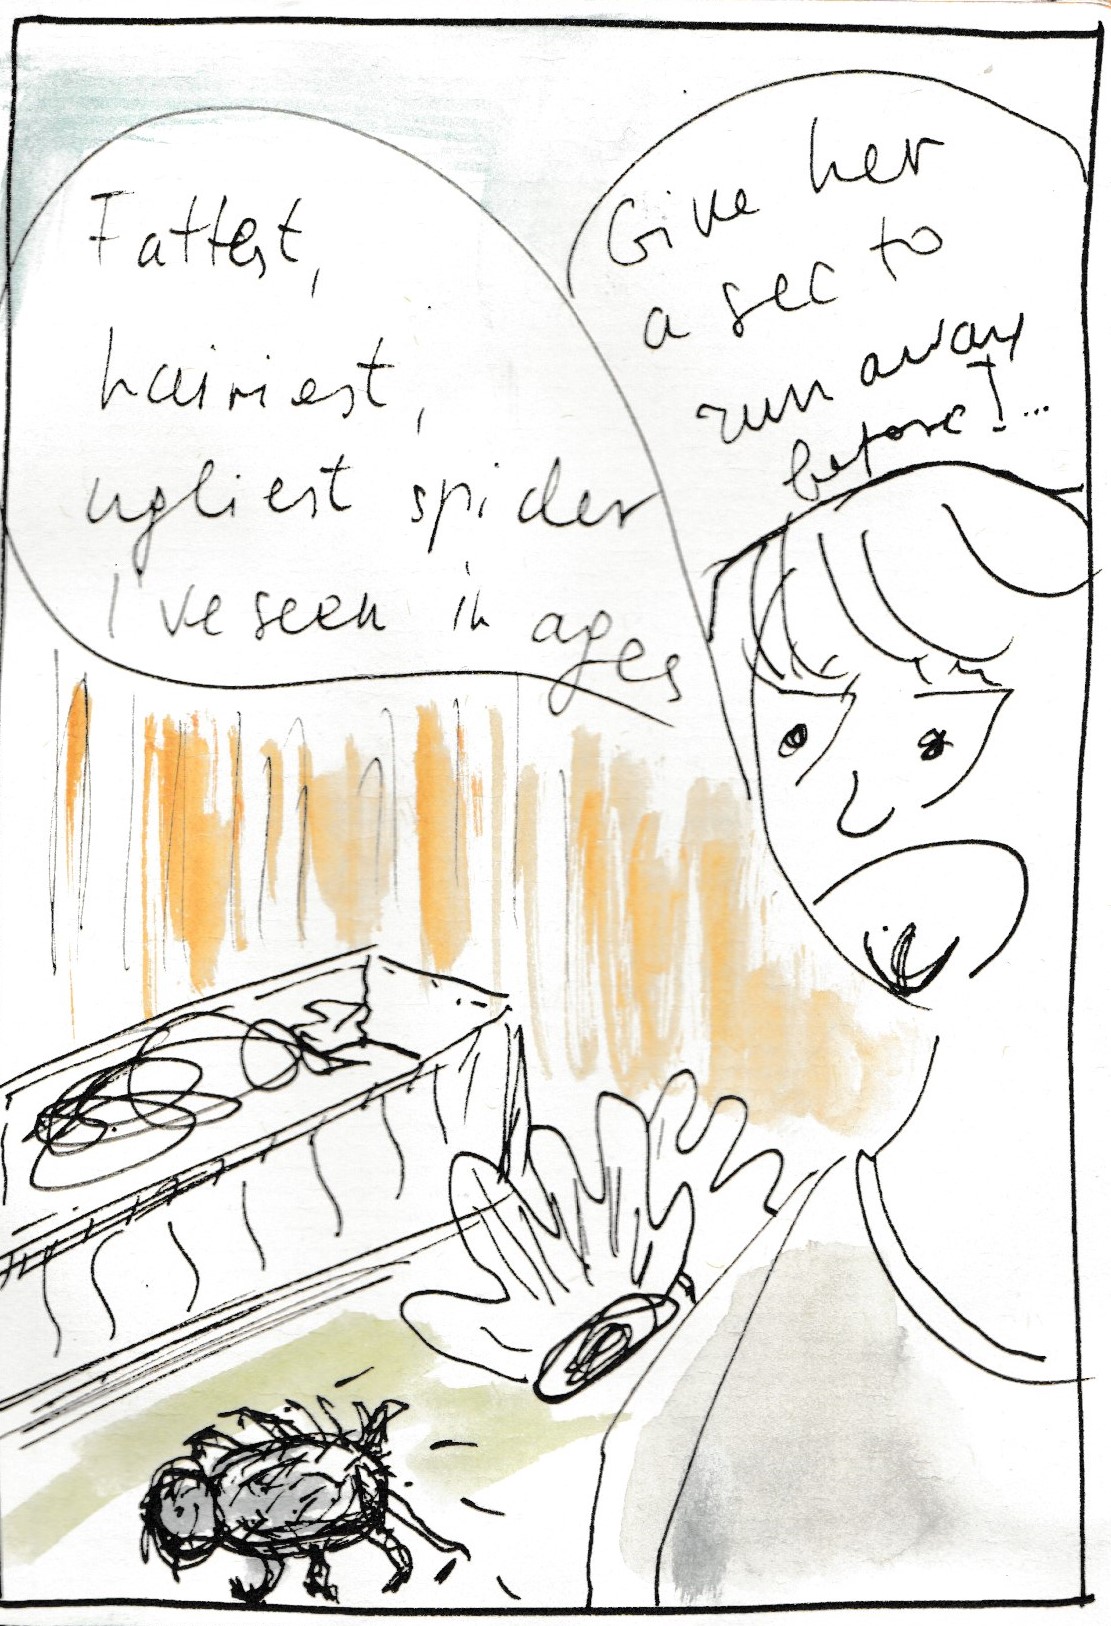 Fattest,
hairiest,
ugliest spider
I've seen in ages
Give her
a sec to
run away
before!...